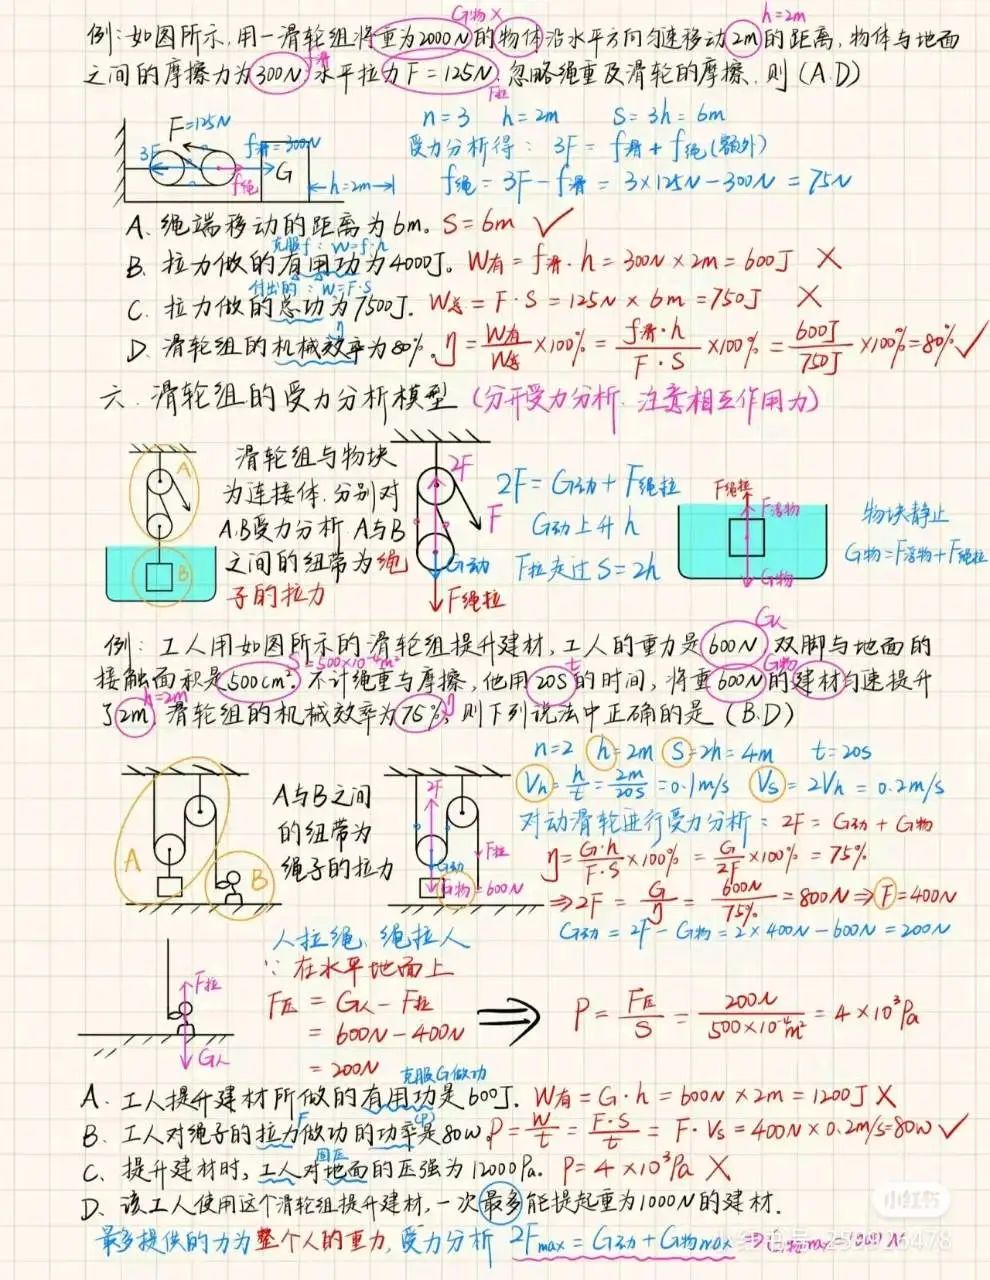 G物 X
h=2m
例:如图所示,用一滑轮组将重为2000N的物体沿水平方向匀速移动2m的距离,物体与地面
之间的摩擦力为300N,水平拉力F=125N,忽略绳重及滑轮的摩擦,则(A.D)
f滑
F拉
n=3 h=2m S=3h=6m
受力分析得: 3F=f滑+f绳(额外)
f绳=3F-f滑=3×125N-300N=75N
F=125N
3F f滑=300N G
f绳 h=2m
A. 绳端移动的距离为6m。 S=6m ✓
克服f: W=f·h
B. 拉力做的有用功为4000J。 W有=f滑·h=300N×2m=600J X
付出的: W=F·S
C. 拉力做的总功为7500J. W总=F·S=125N×6m=750J X
η
D. 滑轮组的机械效率为80%. η=W有/W总×100%=f滑·h/F·S×100%=600J/750J×100%=80% ✓
六. 滑轮组的受力分析模型(分开受力分析.注意相互作用力)
A
B
滑轮组与物块
为连接体.分别对
A.B受力分析 A与B
之间的纽带为绳
子的拉力
2F
F
G动
F绳拉
2F=G动+F绳拉
G动上升h
F拉走过S=2h
F绳拉
F浮物
G物
物块静止
G物=F浮物+F绳拉
G人
例: 工人用如图所示的滑轮组提升建材,工人的重力是600N 双脚与地面的
S=500×10⁻⁴m² t G物
接触面积是500cm². 不计绳重与摩擦,他用20S的时间,将重600N的建材匀速提升
h=2m η
了2m 滑轮组的机械效率为75%,则下列说法中正确的是(B.D)
n=2 h=2m S=2h=4m t=20s
Vh=h/t=2m/20s=0.1m/s Vs=2Vh=0.2m/s
对动滑轮进行受力分析: 2F=G动+G物
η=G·h/F·S×100%=G/2F×100%=75%
⇒2F=G/η=600N/75%=800N⇒F=400N
G动=2F-G物=2×400N-600N=200N
A
B
A与B之间
的纽带为
绳子的拉力
2F
F拉
G动
G物=600N
F拉
G人
人拉绳、绳拉人
∵在水平地面上
F压=G人-F拉
=600N-400N
=200N
⇒ P=F压/S=200N/500×10⁻⁴m²=4×10³Pa
克服G做功
A. 工人提升建材所做的有用功是600J. W有=G·h=600N×2m=1200J X
F (P)
B. 工人对绳子的拉力做功的功率是80W. P=W/t=F·S/t=F·Vs=400N×0.2m/s=80W ✓
固压
C. 提升建材时,工人对地面的压强为12000Pa. P=4×10³Pa X
D. 该工人使用这个滑轮组提升建材,一次最多能提起重为1000N的建材.
最多提供的力为整个人的重力,受力分析 2Fmax=G动+G物max ⇒G物max=1000N
小红书